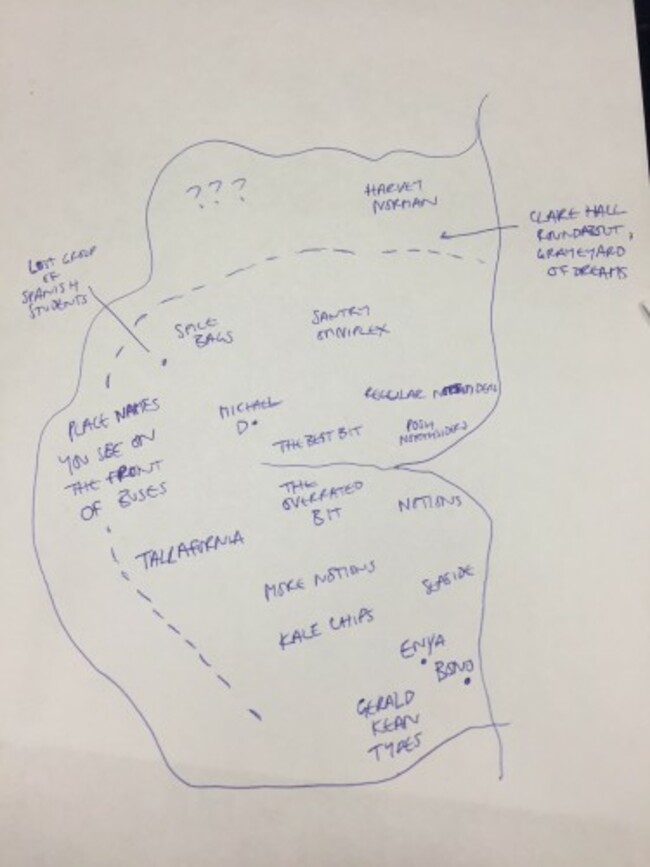 ???
HARVEY
NORMAN
CLARE HALL
ROUNDABOUT,
GRAVEYARD
OF DREAMS
LOST GROUP
OF
SPANISH
STUDENTS
SPICE
BAGS
SANTRY
OMNIPLEX
PLACE NAMES
YOU SEE ON
THE FRONT
OF BUSES
MICHAEL
D
REGULAR NORTHSIDERS
THE BEST BIT
POSH
NORTHSIDERS
THE
OVERRATED
BIT
NOTIONS
TALLAFORNIA
MORE NOTIONS
SEASIDE
KALE CHIPS
ENYA
BONO
GERALD
KEAN
TYPES